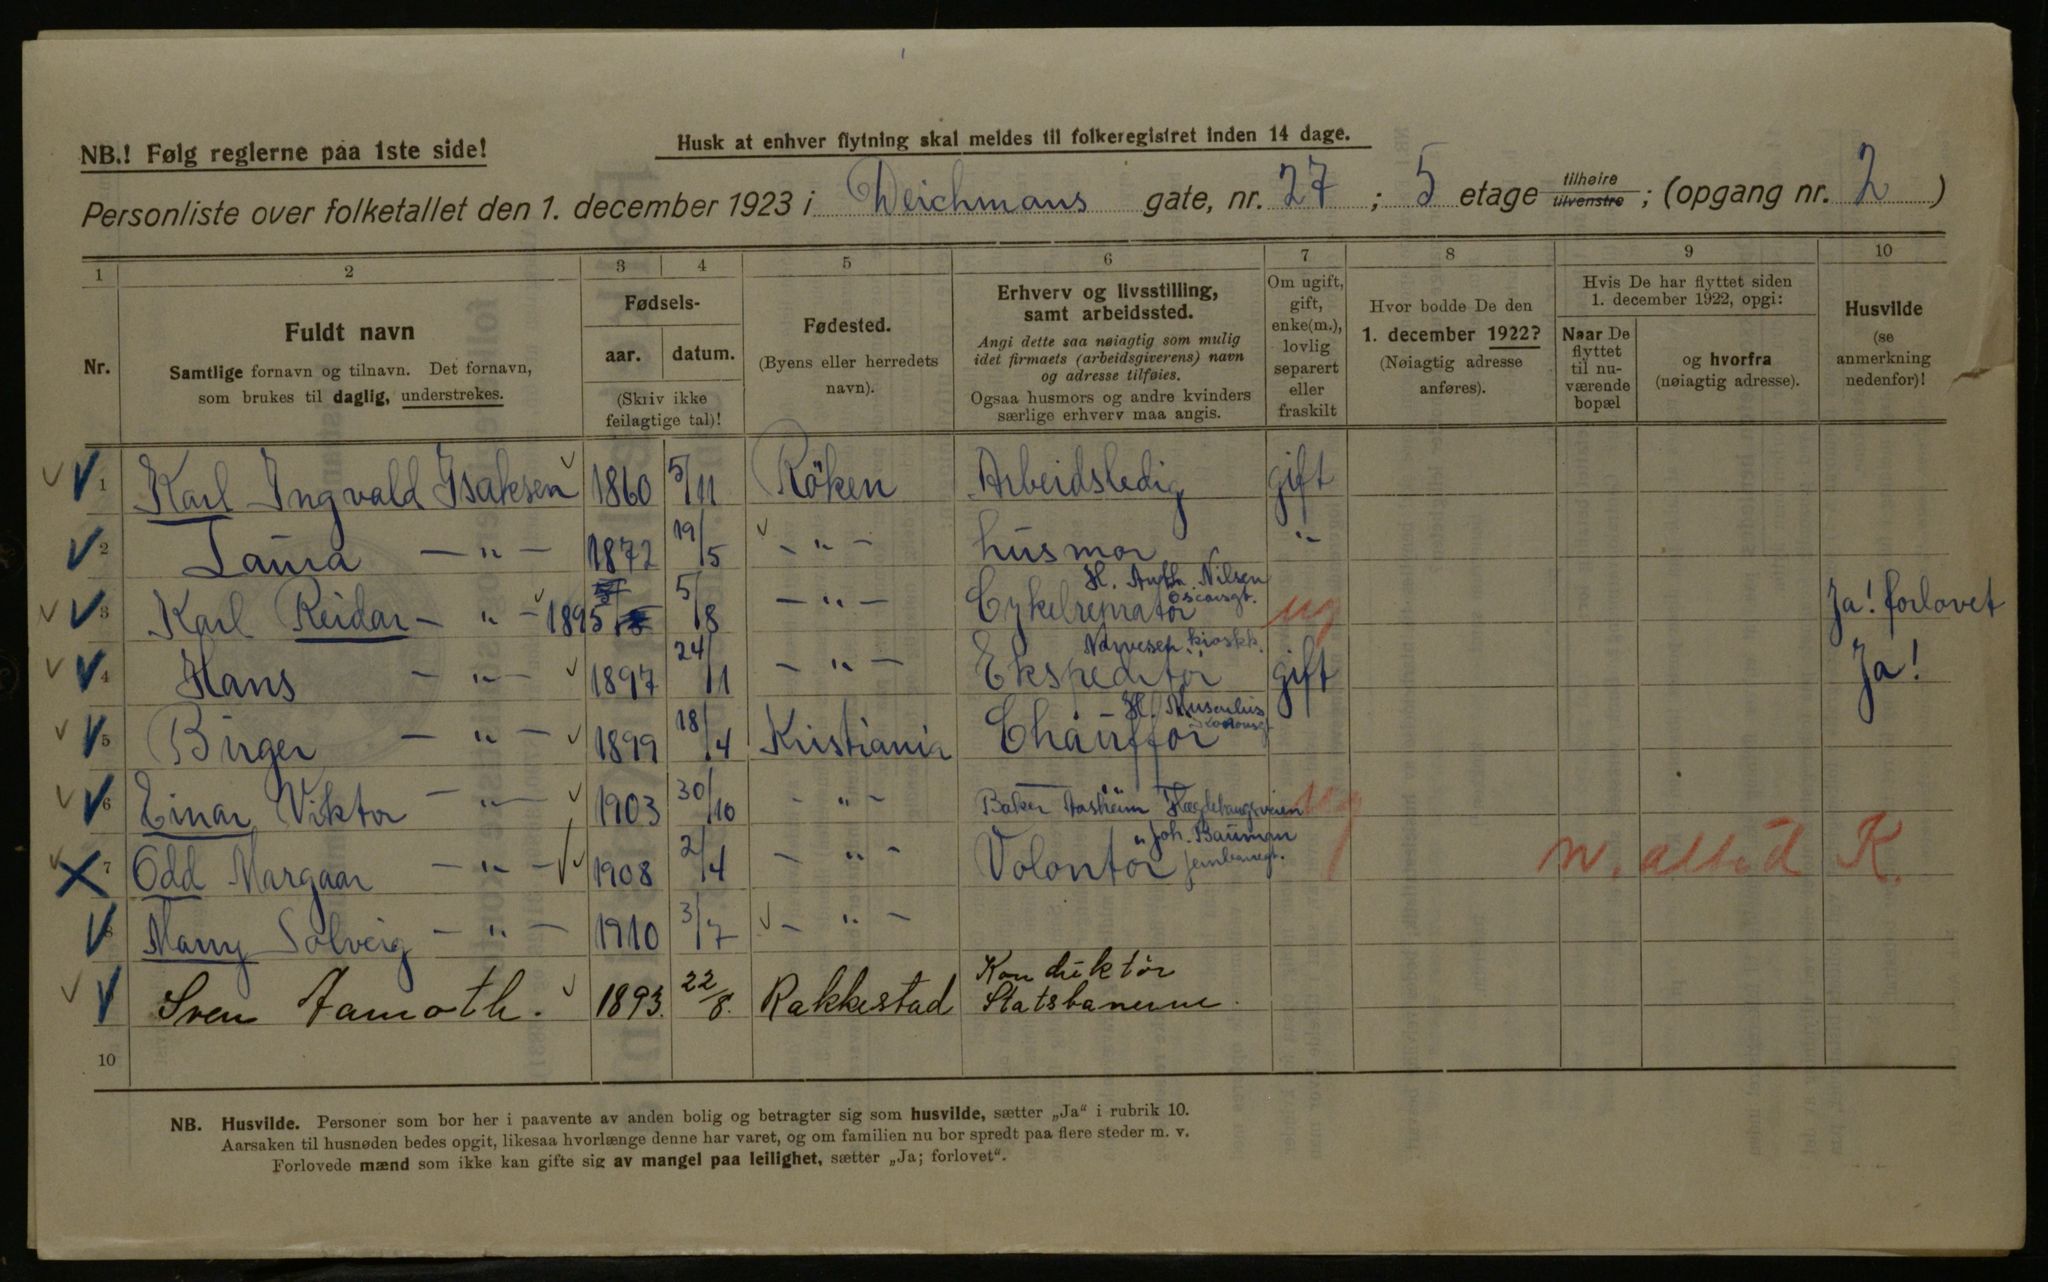 NB.! Følg reglerne paa 1ste side!
Husk at enhver flytning skal meldes til folkeregistret inden 14 dage.
Personliste over folketallet den 1. december 1923 i Deichmans gate, nr. 27 ; 5 etage tilhøire tilvenstre ; (opgang nr. 2 )
1 2 3 4 5 6 7 8 9 10
Nr.
Fuldt navn
Samtlige fornavn og tilnavn. Det fornavn,
som brukes til daglig, understrekes.
Fødsels-
aar. datum.
(Skriv ikke
feilagtige tal)!
Fødested.
(Byens eller herredets
navn).
Erhverv og livsstilling,
samt arbeidssted.
Angi dette saa nøiagtig som mulig
idet firmaets (arbeidsgiverens) navn
og adresse tilføies.
Ogsaa husmors og andre kvinders
særlige erhverv maa angis.
Om ugift,
gift,
enke(m.),
lovlig
separert
eller
fraskilt
Hvor bodde De den
1. december 1922?
(Nøiagtig adresse
anføres).
Hvis De har flyttet siden
1. december 1922, opgi:
Naar De
flyttet
til nu-
værende
bopæl
og hvorfra
(nøiagtig adresse).
Husvilde
(se
anmerkning
nedenfor)!
1 Karl Ingvald Isaksen 1860 5/11 Röken Arbeidsledig gift
2 Laura — " — 1872 19/5 — " — husmor "
H. Anth. Nilsen
Oscarsgt.
3 Karl Reidar — " — 1895 5/8 — " — Cykelrepratör ug Ja! forlovet
Narvesen kioskk.
4 Hans — " — 1897 24/1 — " — Ekspeditör gift Ja!
5 Birger — " — 1899 18/4 Kristiania H.
Chaufför
6 Einar Viktor — " — 1903 30/10 - " - Baker ug
7 Odd Margaar — " — 1908 2/4 - " - Volontör " Joh. Bauman
jernbanegt. n. altid K.
8 Marry Solveig — " — 1910 3/7 - " -
Sven Aamoth. 1893. 22/8. Rakkestad Konduktør
Statsbanerne.
10
NB. Husvilde. Personer som bor her i paavente av anden bolig og betragter sig som husvilde, sætter „Ja" i rubrik 10.
Aarsaken til husnøden bedes opgit, likesaa hvorlænge denne har varet, og om familien nu bor spredt paa flere steder m. v.
Forlovede mænd som ikke kan gifte sig av mangel paa leilighet, sætter „Ja; forlovet".